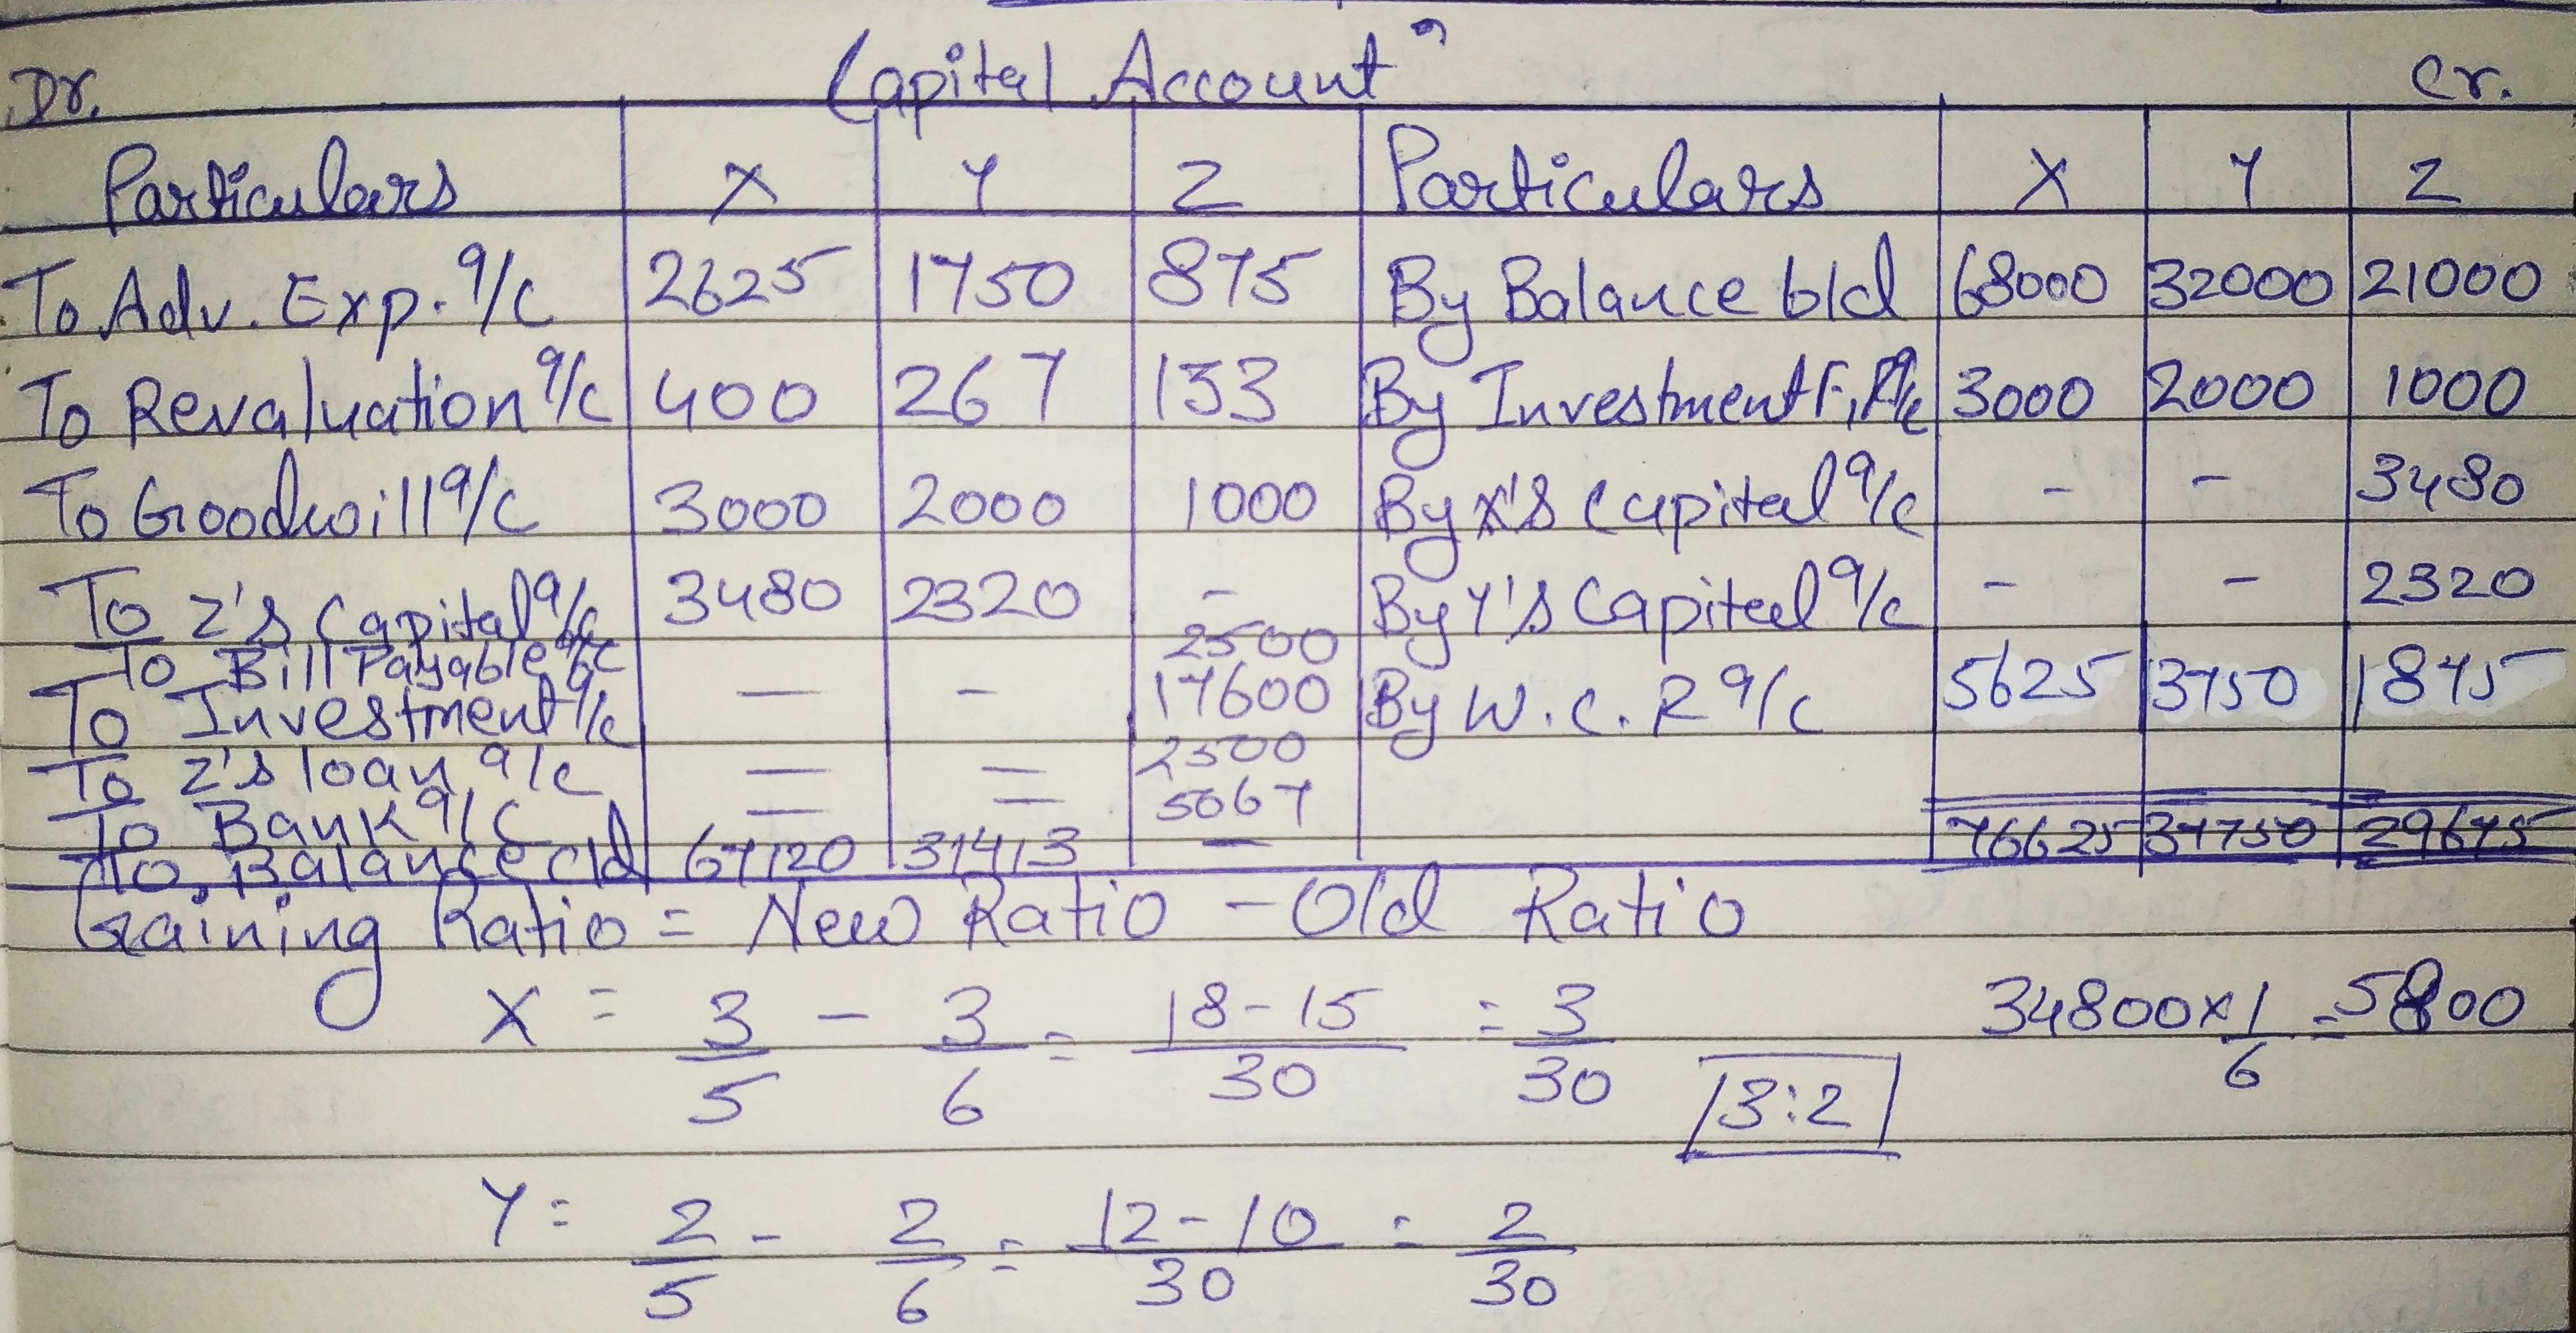 Capital Account
Dr. Cr.
Particulars X Y Z Particulars X Y Z
To Adv. Exp. a/c 2625 1750 875 By Balance b/d 68000 32000 21000
To Revaluation a/c 400 267 133 By Investment F. a/c 3000 2000 1000
To Goodwill a/c 3000 2000 1000 By X's Capital a/c - - 3480
To Z's Capital a/c 3480 2320 - By Y's Capital a/c - - 2320
To Bill Payable a/c 2500
To Investment a/c — - 17600 By W.C.R a/c 5625 3750 1875
To Z's loan a/c — — 2500
To Bank a/c — — 5067
To Balance c/d 67120 31413 — 76625 37750 29675
Gaining Ratio = New Ratio - Old Ratio
X = 3/5 - 3/6 = 18-15/30 = 3/30 34800 x 1/6 = 5800
3:2
Y = 2/5 - 2/6 = 12-10/30 = 2/30